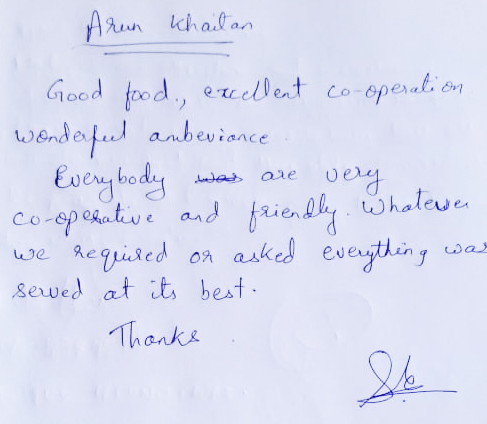 Arun Khaitan
Good food., excellent co-operation
wonderful anbeviance.
Everybody was are very
co-operative and friendly. Whatever
we required or asked everything was
served at its best.
Thanks.